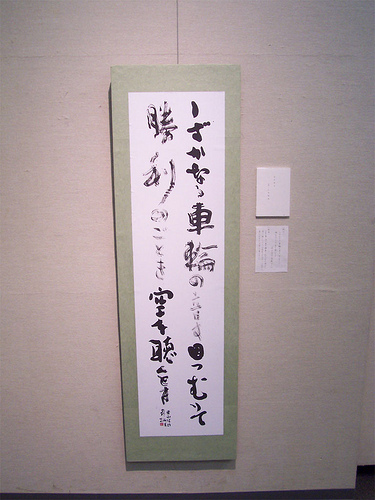 しずかなる車輪の音す目つむりて
勝利のごとき空を聴くとき